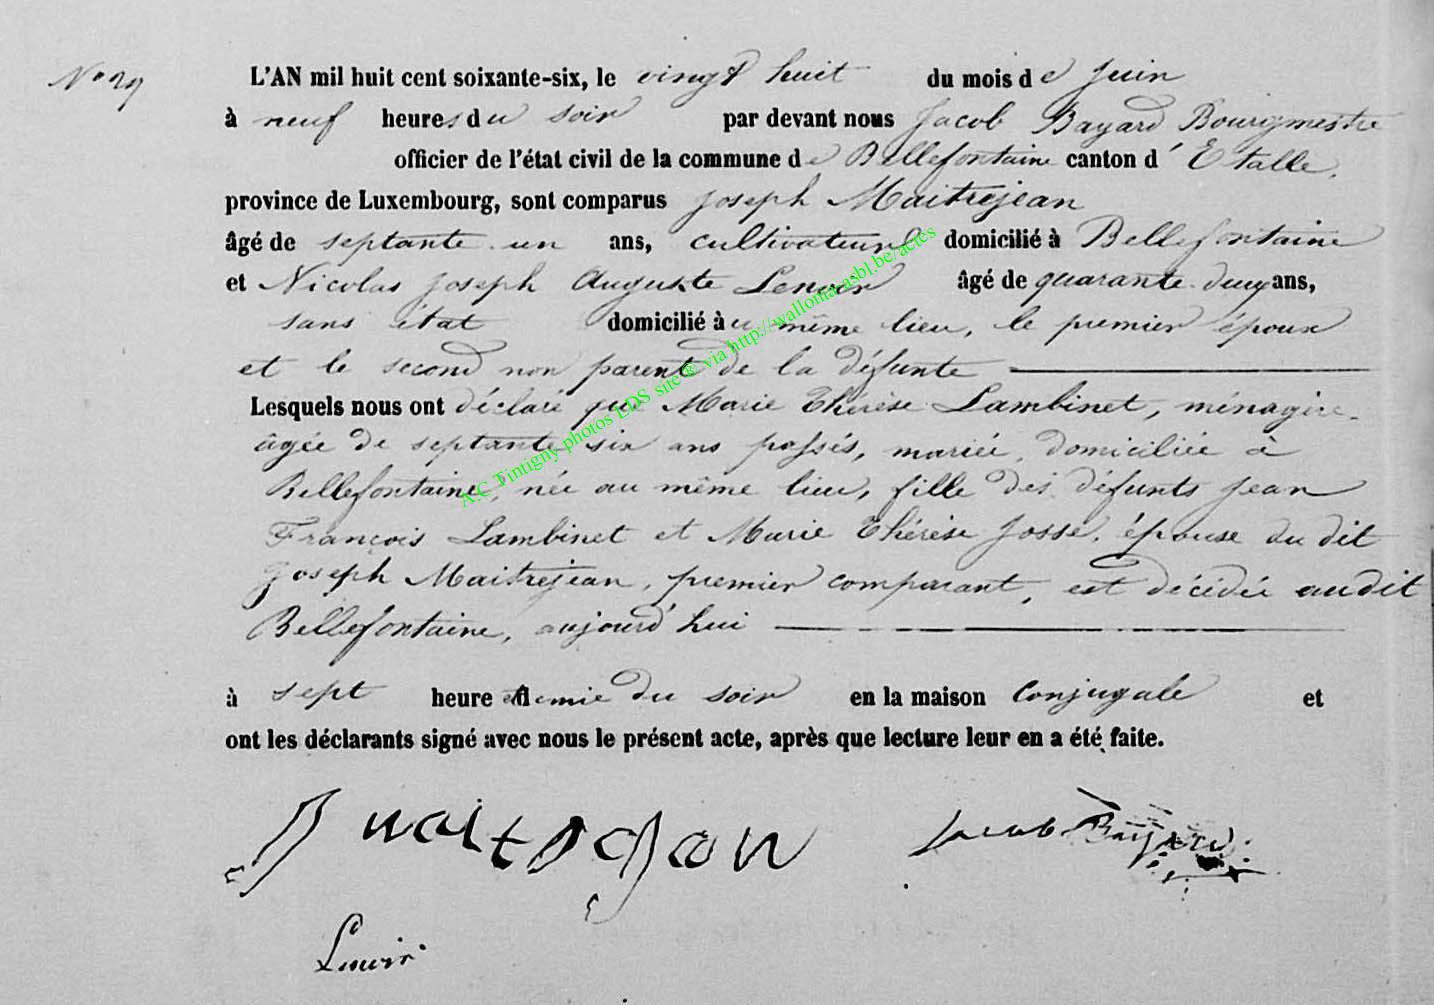 N° 29
L'AN mil huit cent soixante-six, le vingt huit du mois de Juin
à neuf heures du soir par devant nous Jacob Bayard Bourgmestre
officier de l'état civil de la commune de Bellefontaine canton d'Etalle,
province de Luxembourg, sont comparus Joseph Maitrejean
âgé de septante un ans, cultivateur domicilié à Bellefontaine
et Nicolas Joseph Auguste Lenoir âgé de quarante deux ans,
sans état domicilié au même lieu, le premier époux
et le second non parent de la défunte
Lesquels nous ont déclaré que Marie Thérèse Lambinet, ménagère
âgée de septante six ans passés, mariée, domiciliée à
Bellefontaine, née au même lieu, fille des défunts Jean
François Lambinet et Marie Thérèse Josse, épouse du dit
Joseph Maitrejean, premier comparant, est décédée audit
Bellefontaine, aujourd'hui
à sept heure et demie du soir en la maison conjugale et
ont les déclarants signé avec nous le présent acte, après que lecture leur en a été faite.
J maitrejean Jacob Bayard
Lenoir
A.C Tintigny photos LDS site & via http://wallonia-asbl.be/actes